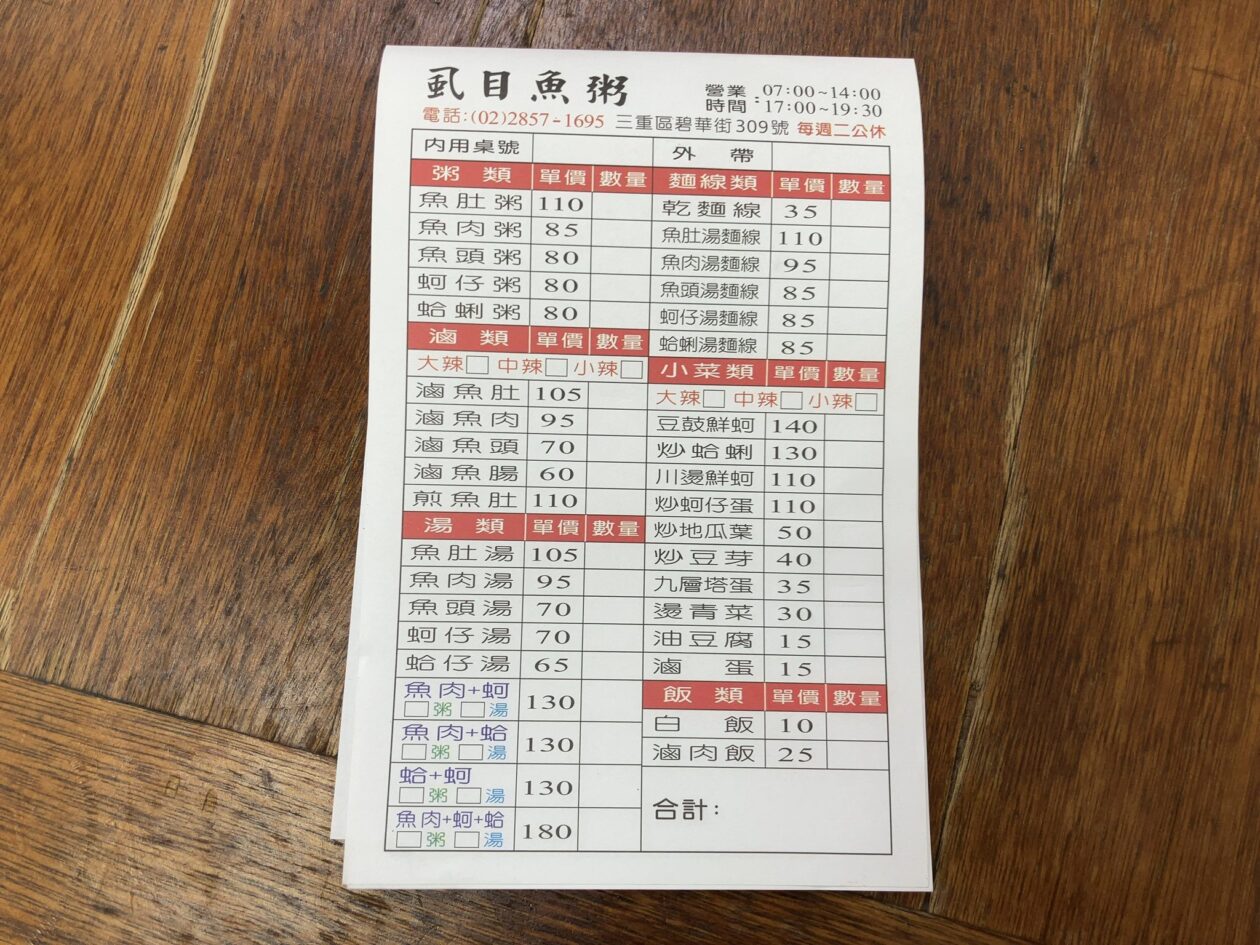 虱目魚粥
營業時間:07:00~14:00
17:00~19:30
電話:(02)2857-1695 三重區碧華街309號 每週二公休
內用桌號
外帶
粥類 單價 數量
魚肚粥 110
魚肉粥 85
魚頭粥 80
蚵仔粥 80
蛤蜊粥 80
滷類 單價 數量
大辣□ 中辣□ 小辣□
滷魚肚 105
滷魚肉 95
滷魚頭 70
滷魚腸 60
煎魚肚 110
湯類 單價 數量
魚肚湯 105
魚肉湯 95
魚頭湯 70
蚵仔湯 70
蛤仔湯 65
魚肉+蚵 130
□粥 □湯
魚肉+蛤 130
□粥 □湯
蛤+蚵 130
□粥 □湯
魚肉+蚵+蛤 180
□粥 □湯
麵線類 單價 數量
乾麵線 35
魚肚湯麵線 110
魚肉湯麵線 95
魚頭湯麵線 85
蚵仔湯麵線 85
蛤蜊湯麵線 85
小菜類 單價 數量
大辣□ 中辣□ 小辣□
豆鼓鮮蚵 140
炒蛤蜊 130
川燙鮮蚵 110
炒蚵仔蛋 110
炒地瓜葉 50
炒豆芽 40
九層塔蛋 35
燙青菜 30
油豆腐 15
滷蛋 15
飯類 單價 數量
白飯 10
滷肉飯 25
合計: